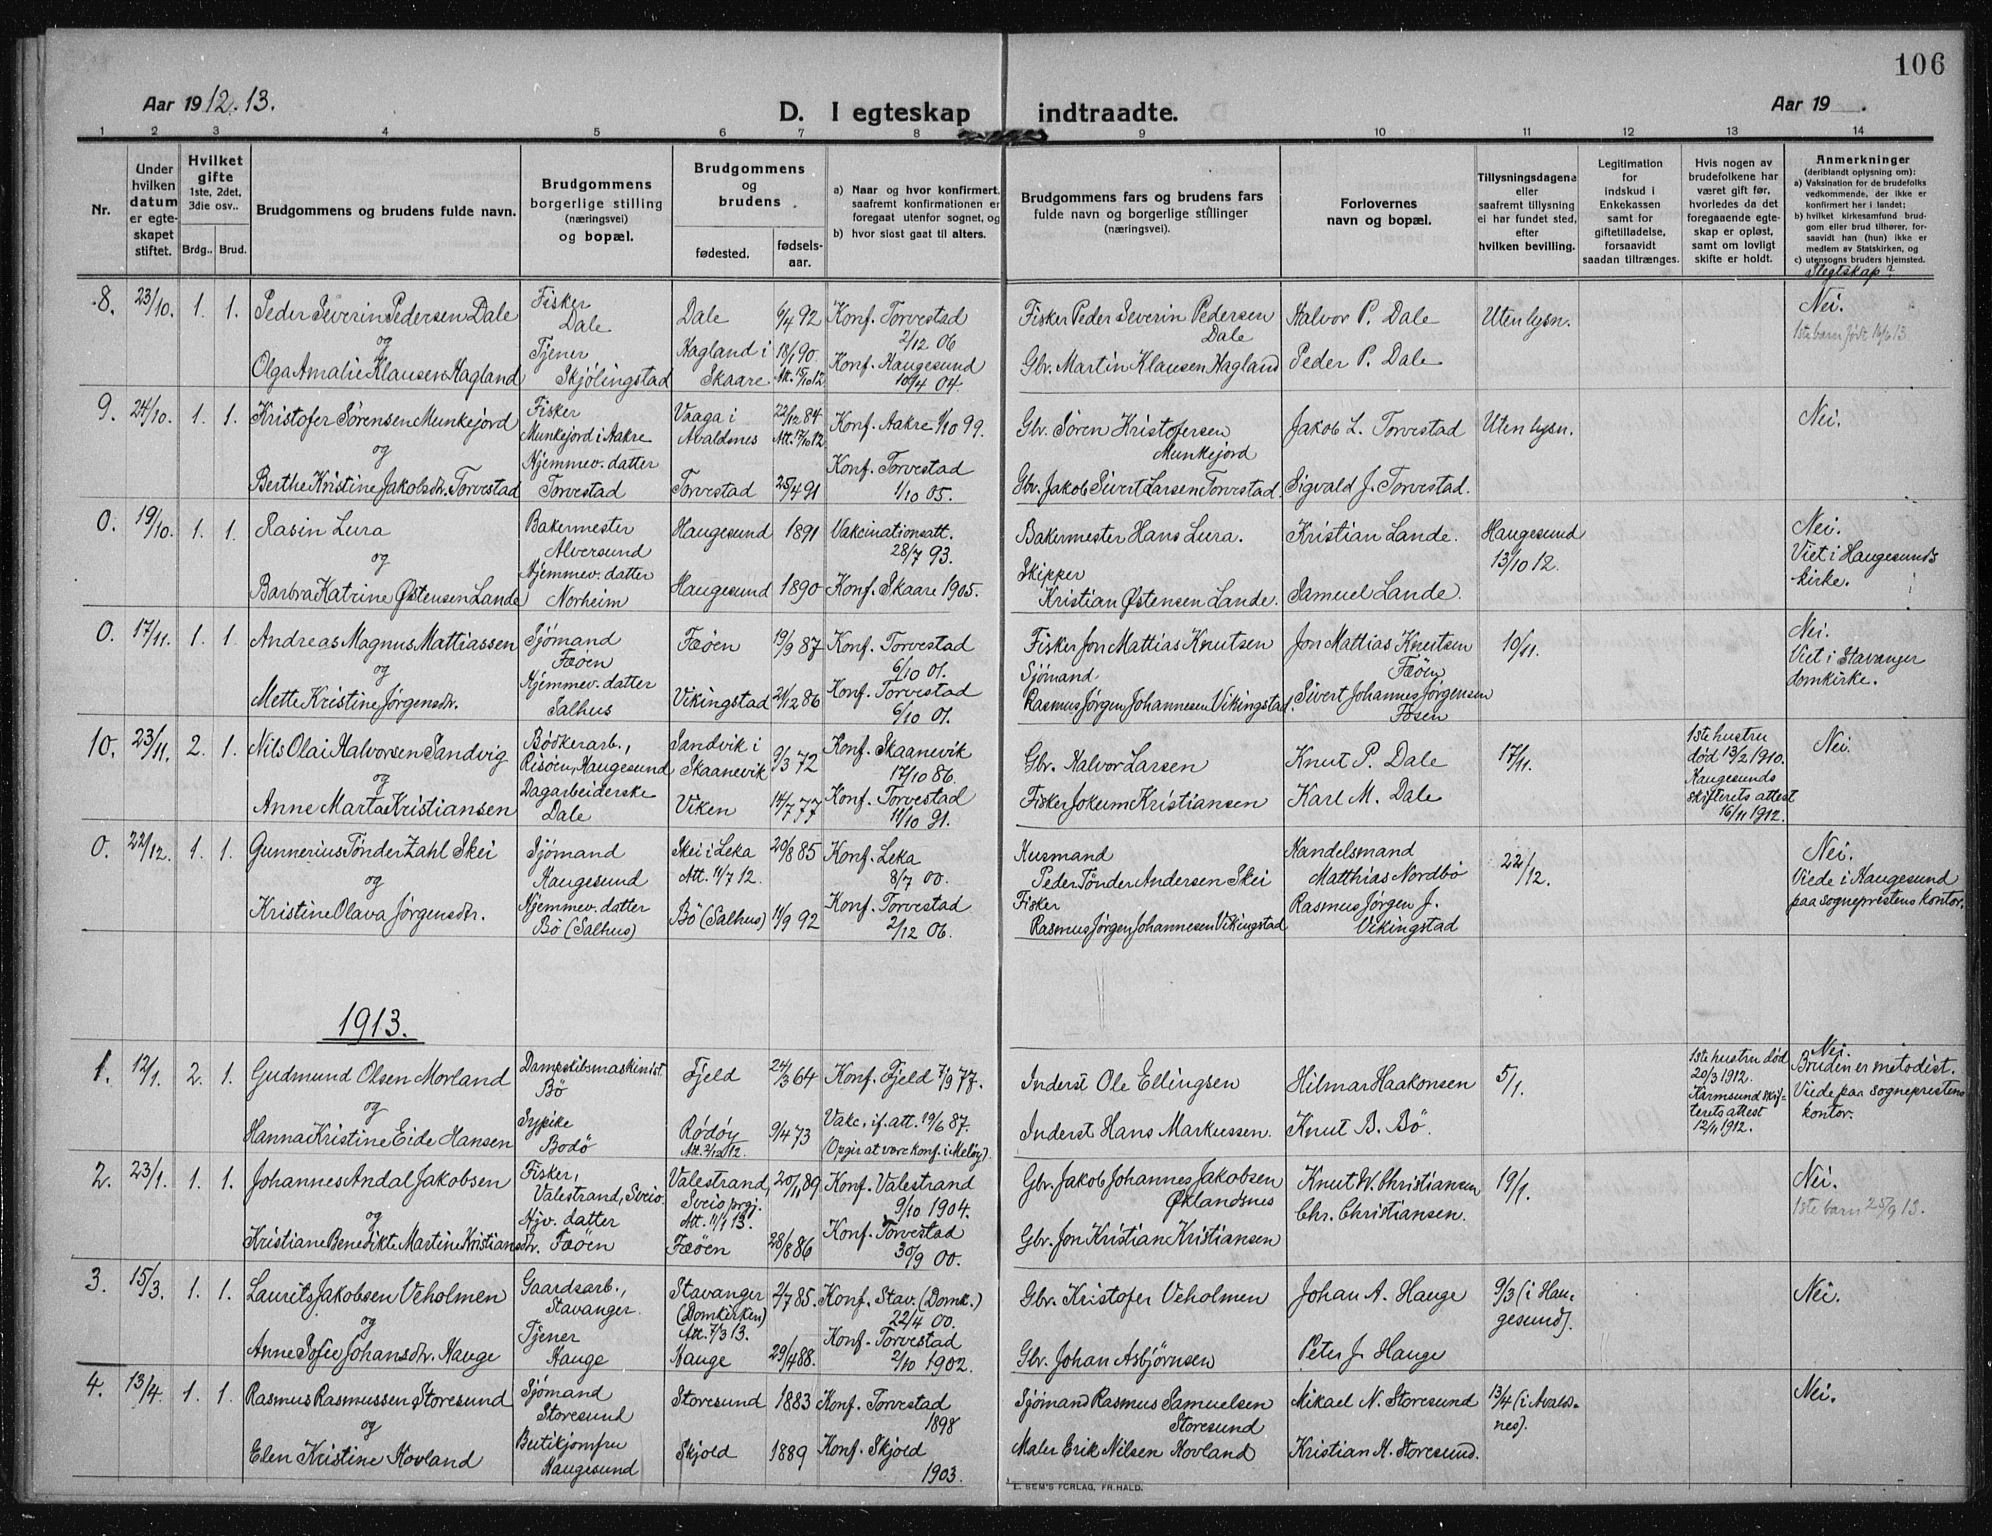 106
Aar 1912.13.
D. I egteskap indtraadte.
Aar 19 .
1 2 3 4 5 6 7 8 9 10 11 12 13 14
Nr.
Under hvilken datum er egteskapet stiftet.
Hvilket gifte
1ste, 2det, 3die osv..
Brdg.. Brud.
Brudgommens og brudens fulde navn.
Brudgommens borgerlige stilling (næringsvei) og bopæl.
Brudgommens og brudens
fødested. fødselsaar.
a) Naar og hvor konfirmert, saafremt konfirmationen er foregaat utenfor sognet, og
b) hvor sidst gaat til alters.
Brudgommens fars og brudens fars fulde navn og borgerlige stillinger (næringsvei).
Forlovernes navn og bopæl.
Tillysningsdagene eller saafremt tillysning ei har fundet sted, efter hvilken bevilling.
Legitimation for indskud i Enkekassen samt for giftetilladelse, forsaavidt saadan tiltrænges.
Hvis nogen av brudefolkene har været gift før, hvorledes da det foregaaende egteskap er opløst, samt om lovligt skifte er holdt.
Anmerkninger
(deriblandt oplysning om):
a) Vaksination for de brudefolks vedkommende, der ikke er konfirmert her i landet;
b) hvilket kirkesamfund brudgom eller brud tilhører, forsaavidt han (hun) ikke er medlem av Statskirken, og
c) utensogns bruders hjemsted.
Slegtskap?
8. 23/10. 1. 1. Peder Severin Pedersen Dale
og
Olga Amalie Klausen Hagland
Fisker
Dale
Tjener
Skjølingstad
Dale 6/4 92
Hagland i Skaare 18/1 90. Att. 15/10 12
Konf. Torvestad
2/12 06
Konf. Haugesund
10/4 04
Fisker Peder Severin Pedersen
Dale
Gbr. Martin Klausen Hagland
Halvor P. Dale
Peder P. Dale
Uten lysn.
Nei.
1ste barn født 16/6 13
9. 24/10. 1. 1. Kristofer Sørensen Munkejord
og
Berthe Kristine Jakobsdtr. Torvestad
Fisker
Munkejord i Aakre
Hjemmev. datter
Torvestad
Vaaga i Avaldsnes 22/12 84
Torvestad 25/4 91
Konf. Aakre 1/10 99.
Konf. Torvestad
1/10 05.
Gbr. Søren Kristofersen
Munkejord
Gbr. Jakob Sivert Larsen Torvestad.
Jakob L. Torvestad
Sigvald J. Torvestad.
Uten lysn.
Nei.
0. 19/10. 1. 1. Rasin Lura
og
Barbra Katrine Østensen Lande
Bakermester
Alversund
Hjemmev. datter
Norheim
Haugesund 1891
Haugesund 1890
Vakcinationsatt.
28/7 93.
Konf. Skaare 1905.
Bakermester Hans Lura.
Skipper
Kristian Østensen Lande.
Kristian Lande.
Samuel Lande.
Haugesund
13/10 12.
Nei.
Viet i Haugesunds
kirke.
0. 17/11. 1. 1. Andreas Magnus Mattiassen
og
Mette Kristine Jørgensdtr.
Sjømand
Føøen
Hjemmev. datter
Salhus
Føøen 19/9 87
Vikingstad 21/12 86
Konf. Torvestad
6/10 01.
Konf. Torvestad
6/10 01.
Fisker Jon Mattias Knutsen
Sjømand
Rasmus Jørgen Johannesen Vikingstad.
Jon Mattias Knutsen
Føøen
Sivert Johannes Jørgensen
Fosen
10/11.
Nei.
Viet i Stavanger
domkirke.
10. 23/11. 2. 1. Nils Olai Halvorsen Sandvig
og
Anne Marta Kristiansen
Bødkerarb.,
Risøen, Haugesund
Dagarbeiderske
Dale
Sandvik i
Skaanevik 9/3 72
Viken 14/7 77
Konf. Skaanevik
17/10 86.
Konf. Torvestad
11/10 91.
Gbr. Halvor Larsen
Fisker Jokum Kristiansen
Knut P. Dale
Karl M. Dale
17/11.
1ste hustru
død 13/2 1910.
Haugesunds
skifterets attest
16/11 1912.
Nei.
0. 22/12. 1. 1. Gunnerius Tønder Zahl Skei
og
Kristine Olava Jørgensdtr.
Sjømand
Haugesund
Hjemmev. datter
Bø (Salhus)
Skei i Leka 29/8 85
Att. 11/7 12.
Bø (Salhus) 11/9 92
Konf. Leka
8/7 00.
Konf. Torvestad
2/12 06.
Husmand
Peder Tønder Andersen Skei
Fisker
Rasmus Jørgen Johannesen Vikingstad
Handelsmand
Matthias Nordbø
Rasmus Jørgen J.
Vikingstad
22/12.
Nei.
Viede i Haugesund
paa sogneprestens kontor.
1913.
1. 12/1. 2. 1. Gudmund Olsen Morland
og
Hanna Kristine Eide Hansen
Dampskibsmaskinist
Bø
Sypike
Bodø
Fjeld 24/3 64
Rødøy 9/4 73
Att. 2/12 12.
Konf. Fjeld 7/9 77.
Vakc. if. att. 19/6 87.
(Opgir at være konf. i Meløy).
Inderst Ole Ellingsen
Inderst Hans Markussen.
Hilmar Haakonsen
Knut B. Bø.
5/1.
1ste hustru død
20/3 1912.
Karmsund skifterets attest
12/11 1912.
Nei.
Bruden er metodist.
Viede paa sogneprestens
kontor.
2. 23/1. 1. 1. Johannes Andal Jakobsen
og
Kristiane Benedikte Martine Kristiansdtr.
Fisker,
Valestrand, Sveio.
Hjv. datter
Føøen
Valestrand,
Sveio prgj.
Att. 11/1 13. 20/11 89
Føøen 28/8 86
Konf. Valestrand
9/10 1904.
Konf. Torvestad
30/9 00.
Gbr. Jakob Johannes Jakobsen
Øklandsnes
Gbr. Jon Kristian Kristiansen
Knut W. Christiansen
Chr. Christiansen.
19/1.
Nei.
1ste barn 25/9 13.
3. 15/3. 1. 1. Laurits Jakobsen Veholmen
og
Anne Sofie Johansdtr. Hauge
Gaardsarb.,
Stavanger.
Tjener
Hauge
Stavanger
(Domkirken)
Att. 7/3 13. 2/7 85.
Hauge 29/4 88.
Konf. Stav. (Domk.)
22/4 00.
Konf. Torvestad
2/10 1902.
Gbr. Kristofer Veholmen
Gbr. Johan Asbjørnsen
Johan A. Hauge
Peter J. Hauge
9/3 (i Haugesund).
Nei.
4. 13/4. 1. 1. Rasmus Rasmussen Storesund
og
Elen Kristine Hovland
Sjømand
Storesund
Butikjomfru
Haugesund
Storesund 1883
Skjold 1889
Konf. Torvestad
1898
Konf. Skjold
1903.
Sjømand Rasmus Samuelsen
Storesund
Maler Erik Nilsen Hovland
Mikael N. Storesund
Kristian H. Storesund.
13/4 (i Avaldsnes).
Nei.
E. SEM'S FORLAG, FR.HALD.